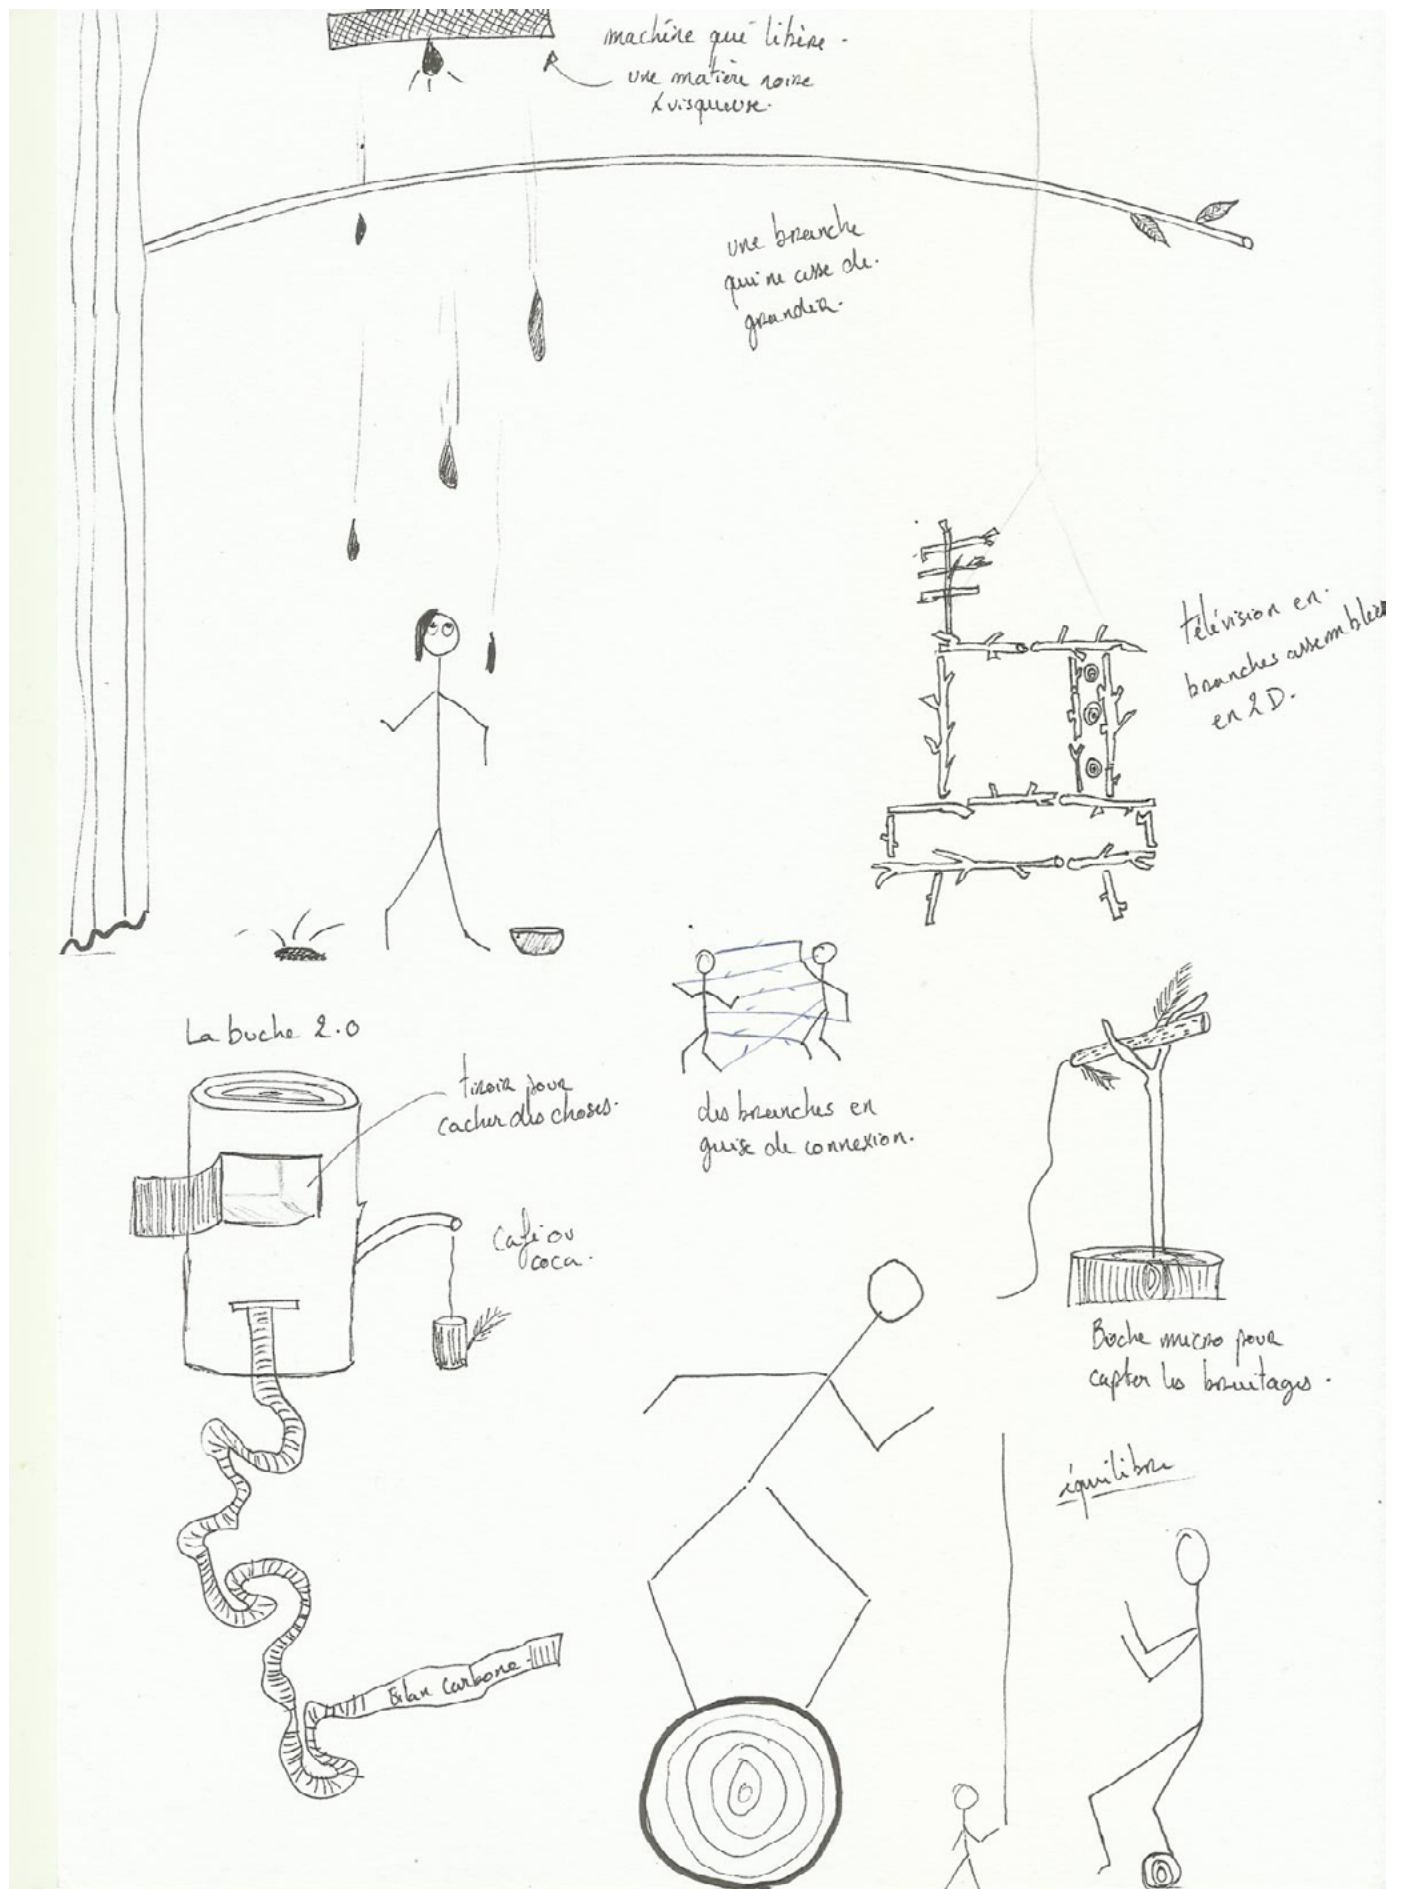 machine qui libère.
une matière noire
& visqueuse.
une branche
qui ne cesse de.
grandir.
télévision en.
branches assemblées
en 2D.
La buche 2.0
tiroir pour
cacher des choses.
des branches en
guise de connexion.
Café ou
coca.
Bûche micro pour
capter les bruitages.
équilibre
Bilan Carbone.